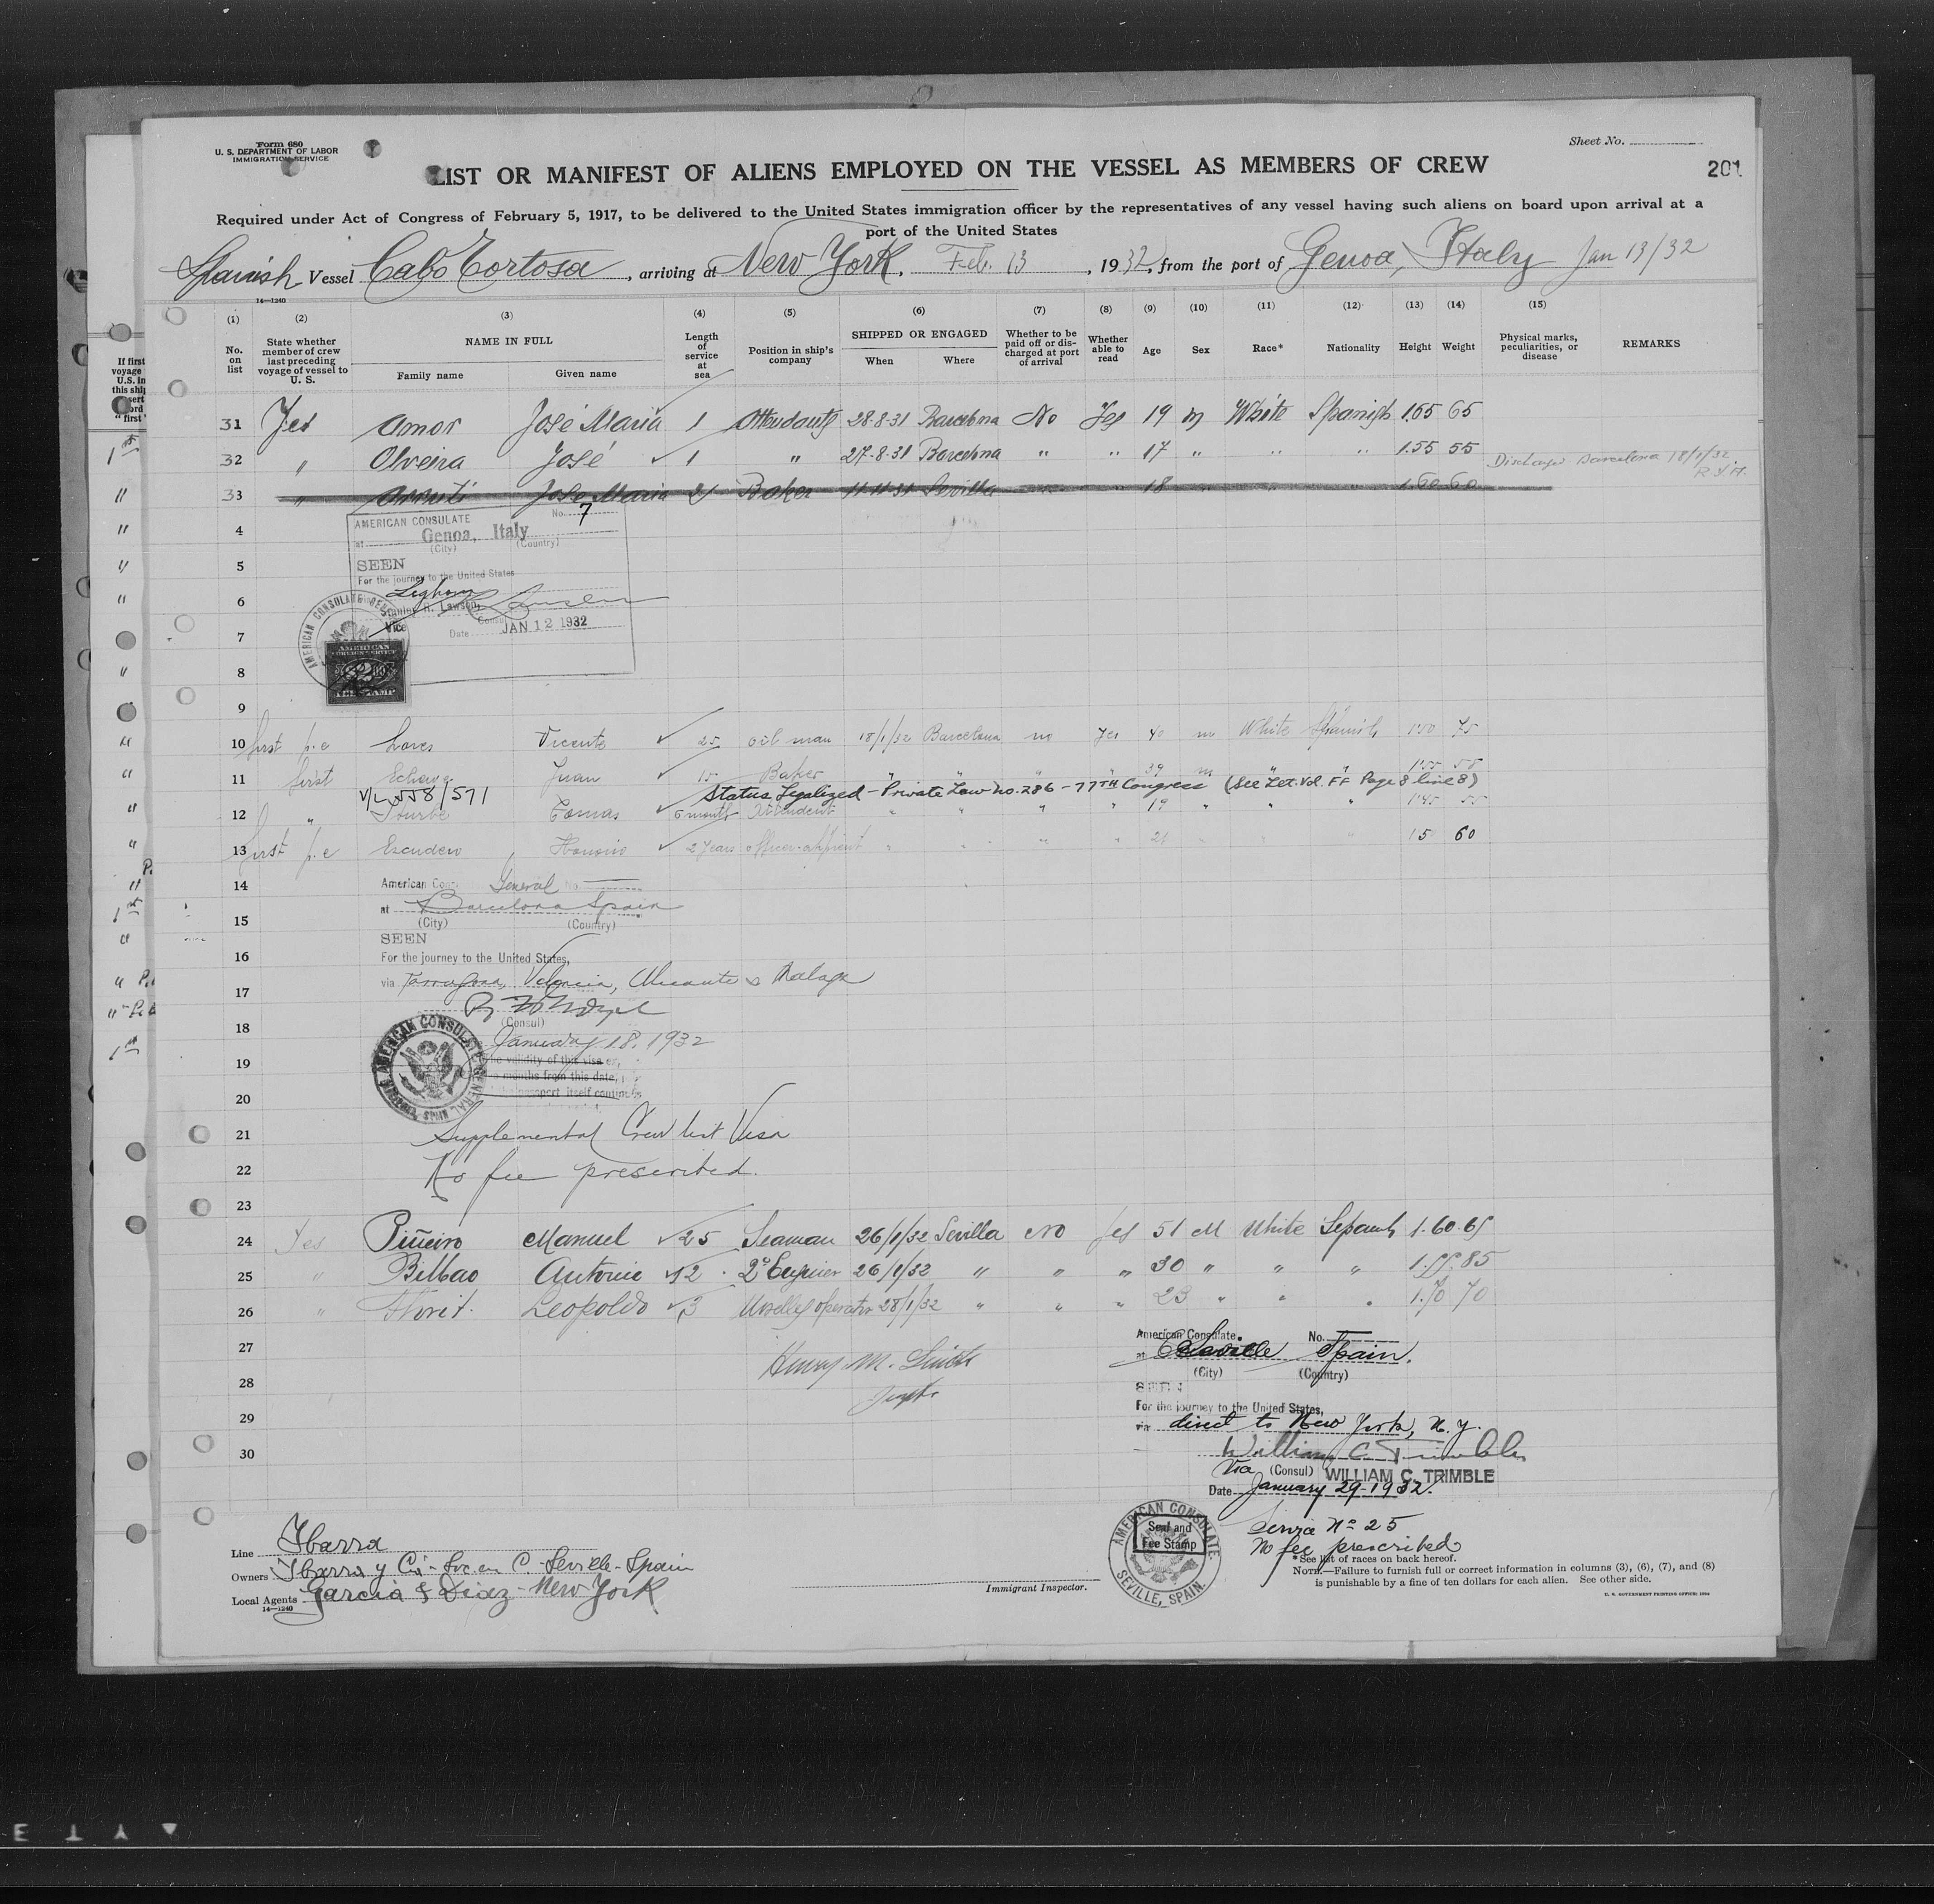 Form 680
U. S. DEPARTMENT OF LABOR
IMMIGRATION SERVICE
Sheet No.
LIST OR MANIFEST OF ALIENS EMPLOYED ON THE VESSEL AS MEMBERS OF CREW
201
Required under Act of Congress of February 5, 1917, to be delivered to the United States immigration officer by the representatives of any vessel having such aliens on board upon arrival at a
port of the United States
Spanish Vessel Cabo Tortosa, arriving at New York, Feb. 13, 1932, from the port of Genoa, Italy Jan 13/32
14—1240
(1) (2) (3) (4) (5) (6) (7) (8) (9) (10) (11) (12) (13) (14) (15)
No. on list
State whether member of crew last preceding voyage of vessel to U. S.
NAME IN FULL
Family name Given name
Length of service at sea
Position in ship's company
SHIPPED OR ENGAGED
When Where
Whether to be paid off or discharged at port of arrival
Whether able to read
Age Sex Race* Nationality Height Weight
Physical marks, peculiarities, or disease
REMARKS
31 Yes Amor José Maria 1 28-8-31 Barcelona No Yes 19 m White Spanish 1.65 65
32 " Olveira José 1 " 27-8-31 Barcelona " " 17 " " " 1.55 55
Discharged Barcelona 18/1/32
33 " José Maria Baker 11-11-31 Sevilla 18 1.60 60
AMERICAN CONSULATE No. 7
4
at Genoa, Italy
(City) (Country)
5
SEEN
For the journey to the United States
6
Leghorn
Vice Consul
7
Date JAN 12 1932
AMERICAN CONSULATE GENERAL
8
9
10 first Vicente 25 oil man 18/1/32 Barcelona no Yes 40 m White Spanish 1.50 75
11 first Juan 15 Baker " " " " 39 m " " 1.55 58
V/L 558/571
Status Legalized - Private Law No. 286 - 77TH Congress (See Let. Vol. FF Page 8 line 8)
12 " Iturbe Tomas 6 months Attendent " " " " 19 " " " 1.45 55
13 first Escudero Honorio 2 years " " " " 21 " " 1.5 60
14
American Cons. General No.
at Barcelona Spain
15
(City) (Country)
SEEN
16
For the journey to the United States,
via Tarragona, Valencia, Alicante & Malaga
17
(Consul)
18
January 18, 1932
AMERICAN CONSULATE GENERAL
19
the validity of this visa
months from this date,
passport itself continues
20
21
Supplemental Crew list Visa
22
No fee prescribed.
23
24 Yes Piñeiro Manuel 25 Seaman 26/1/32 Sevilla No Yes 51 M White Spanish 1.60 65
25 " Bilbao Antonio 12 26/1/32 " " " 30 " " " 1.55 85
26 " Leopoldo 3 operator 28/1/32 " " " 23 " " " 1.70 70
27
Henry M. Smith
28
29
30
American Consulate No.
at Seville Spain.
(City) (Country)
SEEN
For the journey to the United States,
via direct to New York, N.Y.
William C. Trimble
Vice (Consul) WILLIAM C. TRIMBLE
Date January 29-1932.
AMERICAN CONSULATE
SEVILLE, SPAIN.
Seal and Fee Stamp
Service No 25
No fee prescribed
Line Ibarra
Owners Ibarra y Cia. Soc. en C. - Seville - Spain
Local Agents Garcia & Diaz - New York
14—1240
Immigrant Inspector.
*See list of races on back hereof.
NOTE.—Failure to furnish full or correct information in columns (3), (6), (7), and (8)
is punishable by a fine of ten dollars for each alien. See other side.